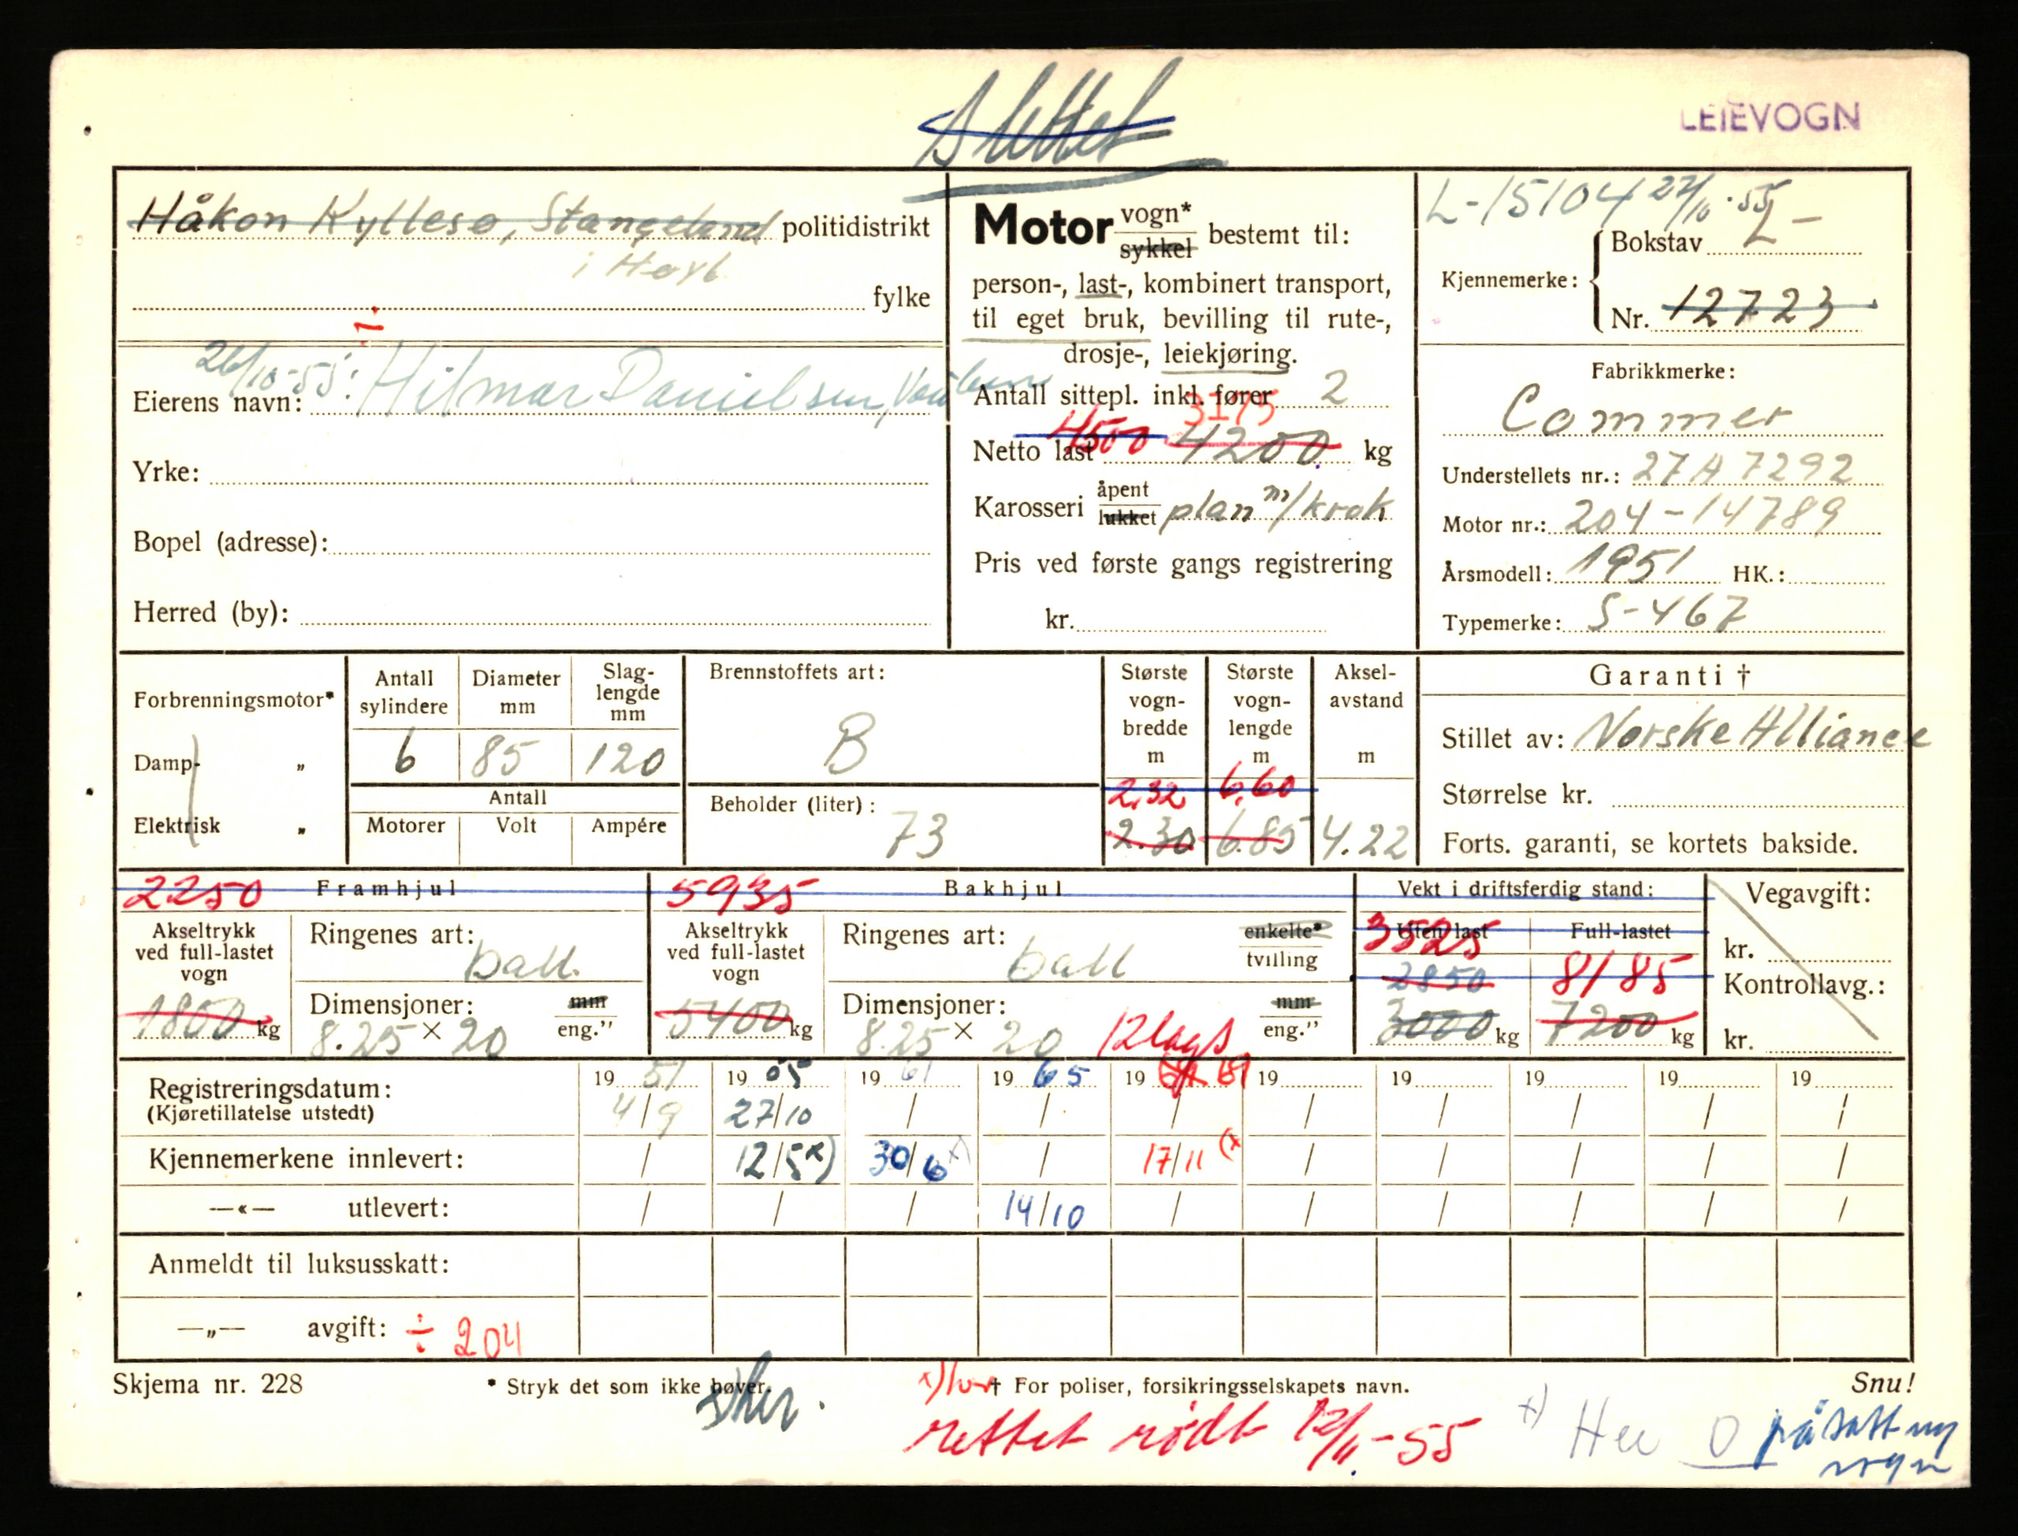 Slettet
LEIEVOGN
Håkon Kyllesø, Stangeland politidistrikt
i Høyl.
fylke
÷
26/10-55: Eierens navn: Hilmar Danielsen,
Yrke:
Bopel (adresse):
Herred (by):
Motor vogn*
sykkel bestemt til:
person-, last-, kombinert transport,
til eget bruk, bevilling til rute-,
drosje-, leiekjøring.
Antall sittepl. inkl. fører 2
3175
Netto last 4500 4200 kg
Karosseri åpent
lukket plan m/krok
Pris ved første gangs registrering
kr.
L-15104 27/10-55
Kjennemerke: Bokstav L-
Nr. 12723
Fabrikkmerke:
Commer
Understellets nr.: 27A7292
Motor nr.: 204-14789
Årsmodell: 1951 HK.:
Typemerke: S-467
Forbrenningsmotor*
Damp- „
Elektrisk „
Antall sylindere
Diameter mm
Slag-lengde mm
6 85 120
Antall
Motorer Volt Ampére
Brennstoffets art:
B
Beholder (liter):
73
Største vogn-bredde m
2.32
2.30
Største vogn-lengde m
6.60
6.85
Aksel-avstand m
4.22
Garanti †
Stillet av: Norske Alliance
Størrelse kr.
Forts. garanti, se kortets bakside.
2250 Framhjul
Akseltrykk
ved full-lastet
vogn
1800 kg
Ringenes art:
ball.
Dimensjoner: mm
8.25 × 20 eng."
5935 Bakhjul
Akseltrykk
ved full-lastet
vogn
5400 kg
Ringenes art: enkelte*
ball tvilling
Dimensjoner: mm
8.25 × 20 12 lags eng."
Vekt i driftsferdig stand:
Uten last Full-lastet
3525
2850 8185
3000 kg 7200 kg
Vegavgift:
kr.
Kontrollavg.:
kr.
Registreringsdatum: 19 51 19 55 19 61 19 65 19 69 19 19 19 19 19
(Kjøretillatelse utstedt) 4/9 27/10 / / / / / / / /
Kjennemerkene innlevert: / 12/5 x) 30/6 x) / 17/11 (x / / / / /
—«— utlevert: / / / 14/10 / / / / / /
Anmeldt til luksusskatt:
—„— avgift: ÷ 204
Skjema nr. 228
* Stryk det som ikke høver.
† For poliser, forsikringsselskapets navn.
Snu!
x) her.
rettet rødt 12/11-55
x) Her
påsatt ny
vogn